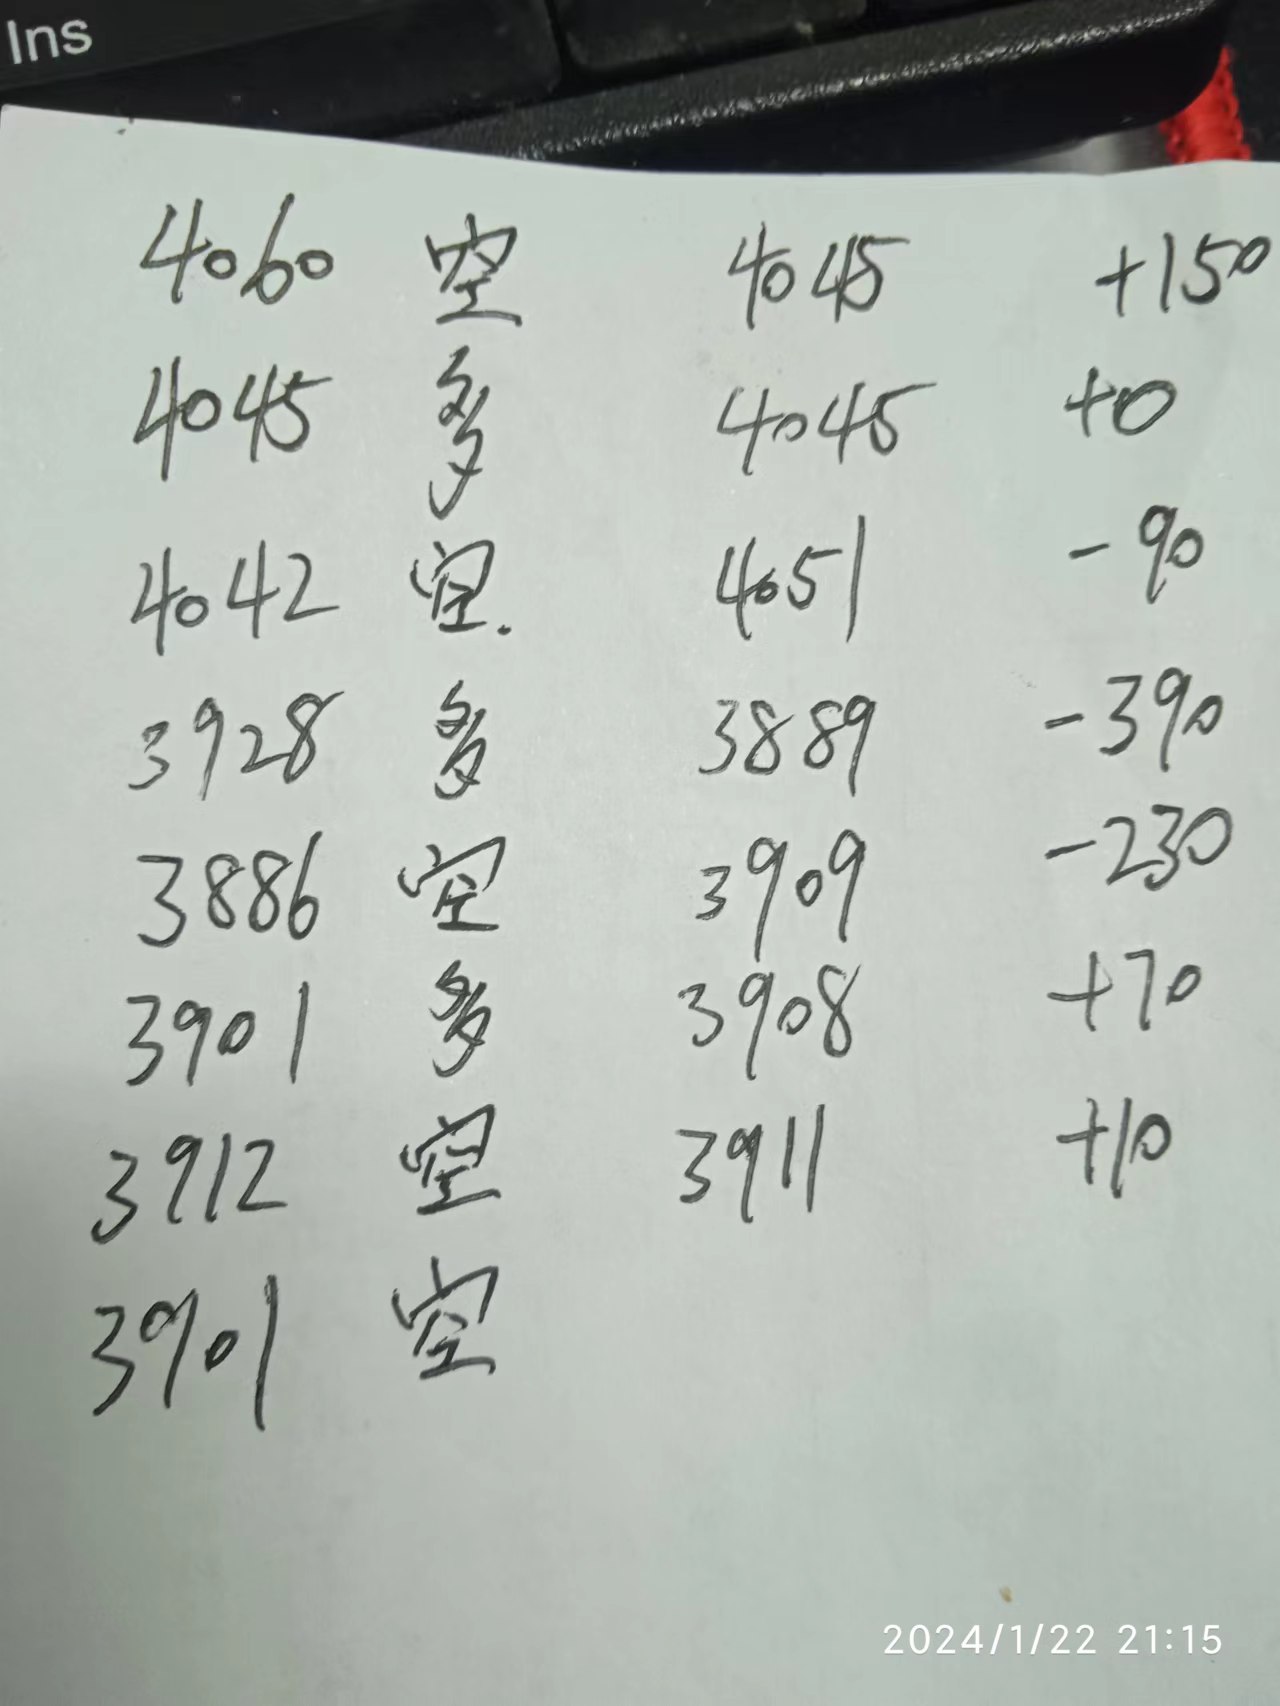 Ins
4060 空 4045 +150
4045 多 4045 +0
4042 空. 4051 -90
3928 多 3889 -390
3886 空 3909 -230
3901 多 3908 +70
3912 空 3911 +10
3901 空
2024/1/22 21:15